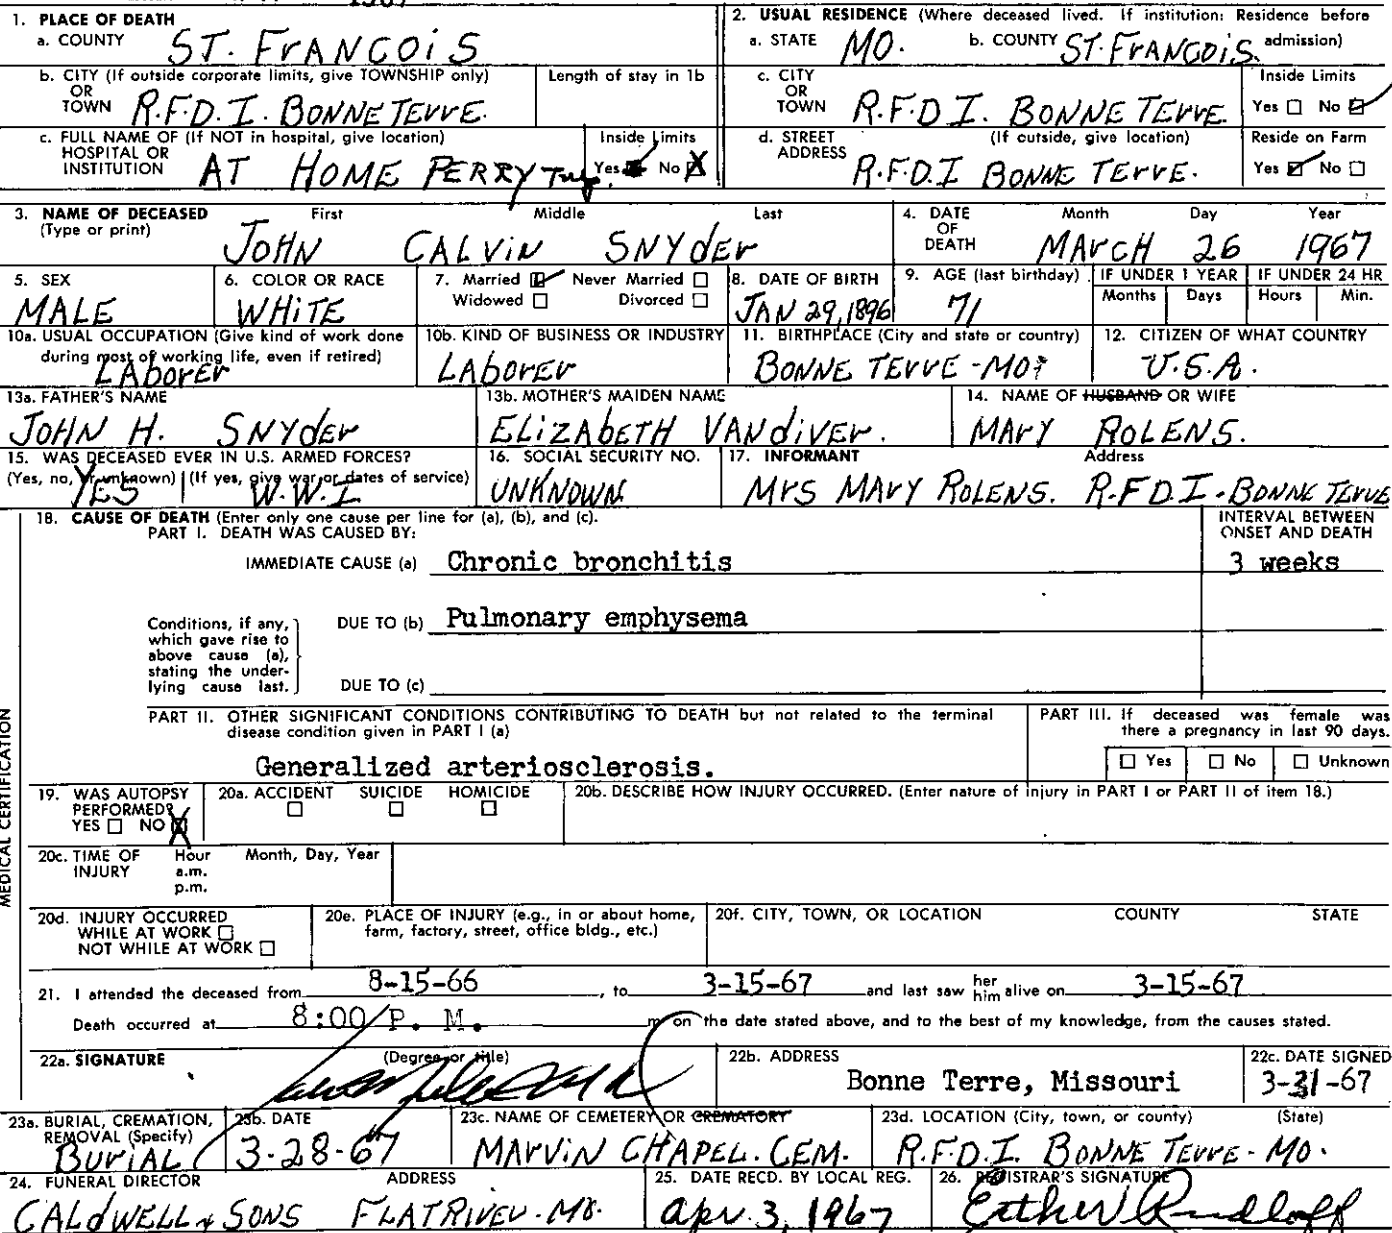 1. PLACE OF DEATH
a. COUNTY ST. FrANCOiS
2. USUAL RESIDENCE (Where deceased lived. If institution: Residence before admission)
a. STATE MO. b. COUNTY ST. FrANCOiS.
b. CITY (If outside corporate limits, give TOWNSHIP only) OR TOWN R.F.D.I. BONNE TErrE.
Length of stay in 1b
c. CITY OR TOWN R.F.D I. BONNE TErrE.
Inside Limits Yes ☐ No ☑
c. FULL NAME OF (If NOT in hospital, give location) HOSPITAL OR INSTITUTION AT HOME PERRY Twp.
Inside Limits Yes No ☒
d. STREET ADDRESS (If outside, give location) R.F.D.I BONNE TErrE.
Reside on Farm Yes ☑ No ☐
3. NAME OF DECEASED (Type or print) First Middle Last
JOHN CALViN SNYdEr
4. DATE OF DEATH Month Day Year
MArCH 26 1967
5. SEX MALE
6. COLOR OR RACE WHiTE
7. Married ☑ Never Married ☐ Widowed ☐ Divorced ☐
8. DATE OF BIRTH JAN 29, 1896
9. AGE (last birthday) 71
IF UNDER 1 YEAR Months Days
IF UNDER 24 HR Hours Min.
10a. USUAL OCCUPATION (Give kind of work done during most of working life, even if retired) LAborEr
10b. KIND OF BUSINESS OR INDUSTRY LAborEr
11. BIRTHPLACE (City and state or country) BONNE TErrE - MO.
12. CITIZEN OF WHAT COUNTRY U.S.A.
13a. FATHER'S NAME JOHN H. SNYdEr
13b. MOTHER'S MAIDEN NAME ELiZAbETH VANdiVEr.
14. NAME OF HUSBAND OR WIFE MAry ROLENS.
15. WAS DECEASED EVER IN U.S. ARMED FORCES?
(Yes, no, or unknown) (If yes, give war or dates of service) YES W.W.I
16. SOCIAL SECURITY NO. UNKNOWN
17. INFORMANT Address
MrS MAry ROLENS. R.F D.I. BONNE TErrE
18. CAUSE OF DEATH (Enter only one cause per line for (a), (b), and (c).
PART I. DEATH WAS CAUSED BY:
INTERVAL BETWEEN ONSET AND DEATH
IMMEDIATE CAUSE (a) Chronic bronchitis 3 weeks
Conditions, if any, which gave rise to above cause (a), stating the underlying cause last.
DUE TO (b) Pulmonary emphysema
DUE TO (c)
MEDICAL CERTIFICATION
PART II. OTHER SIGNIFICANT CONDITIONS CONTRIBUTING TO DEATH but not related to the terminal disease condition given in PART I (a)
Generalized arteriosclerosis.
PART III. If deceased was female was there a pregnancy in last 90 days.
☐ Yes ☐ No ☐ Unknown
19. WAS AUTOPSY PERFORMED? YES ☐ NO ☒
20a. ACCIDENT ☐ SUICIDE ☐ HOMICIDE ☐
20b. DESCRIBE HOW INJURY OCCURRED. (Enter nature of injury in PART I or PART II of item 18.)
20c. TIME OF INJURY Hour a.m. p.m. Month, Day, Year
20d. INJURY OCCURRED WHILE AT WORK ☐ NOT WHILE AT WORK ☐
20e. PLACE OF INJURY (e.g., in or about home, farm, factory, street, office bldg., etc.)
20f. CITY, TOWN, OR LOCATION COUNTY STATE
21. I attended the deceased from 8-15-66, to 3-15-67 and last saw her him alive on 3-15-67
Death occurred at 8:00 P. M. m on the date stated above, and to the best of my knowledge, from the causes stated.
22a. SIGNATURE (Degree or title)
22b. ADDRESS Bonne Terre, Missouri
22c. DATE SIGNED 3-31-67
23a. BURIAL, CREMATION, REMOVAL (Specify) BUriAL
23b. DATE 3-28-67
23c. NAME OF CEMETERY OR CREMATORY MArViN CHAPEL. CEM.
23d. LOCATION (City, town, or county) (State) R.F.D.I. BONNE TErrE - MO.
24. FUNERAL DIRECTOR ADDRESS
CALdWELL & SONS FLAT RiVEr. MO.
25. DATE RECD. BY LOCAL REG. apr. 3, 1967
26. REGISTRAR'S SIGNATURE Esther Rudloff